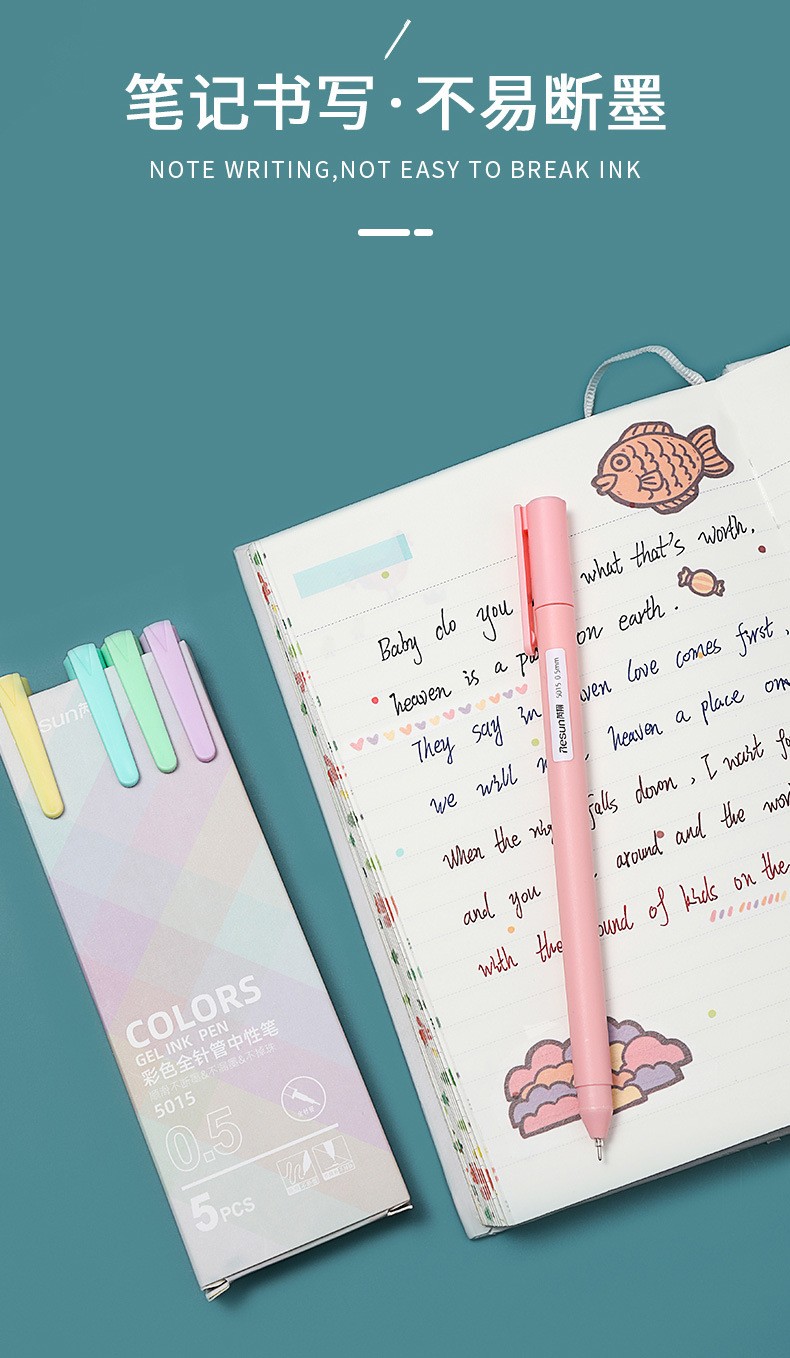 笔记书写·不易断墨
NOTE WRITING,NOT EASY TO BREAK INK
Baby do you what that's worth.
heaven is a on earth.
They say in love comes first,
we will heaven a place
When the falls down, I wait
and you around and the
with the sound of kids on the
Resun 5015 0.5mm
COLORS
GEL INK PEN
彩色全针管中性笔
5015
0.5
5PCS